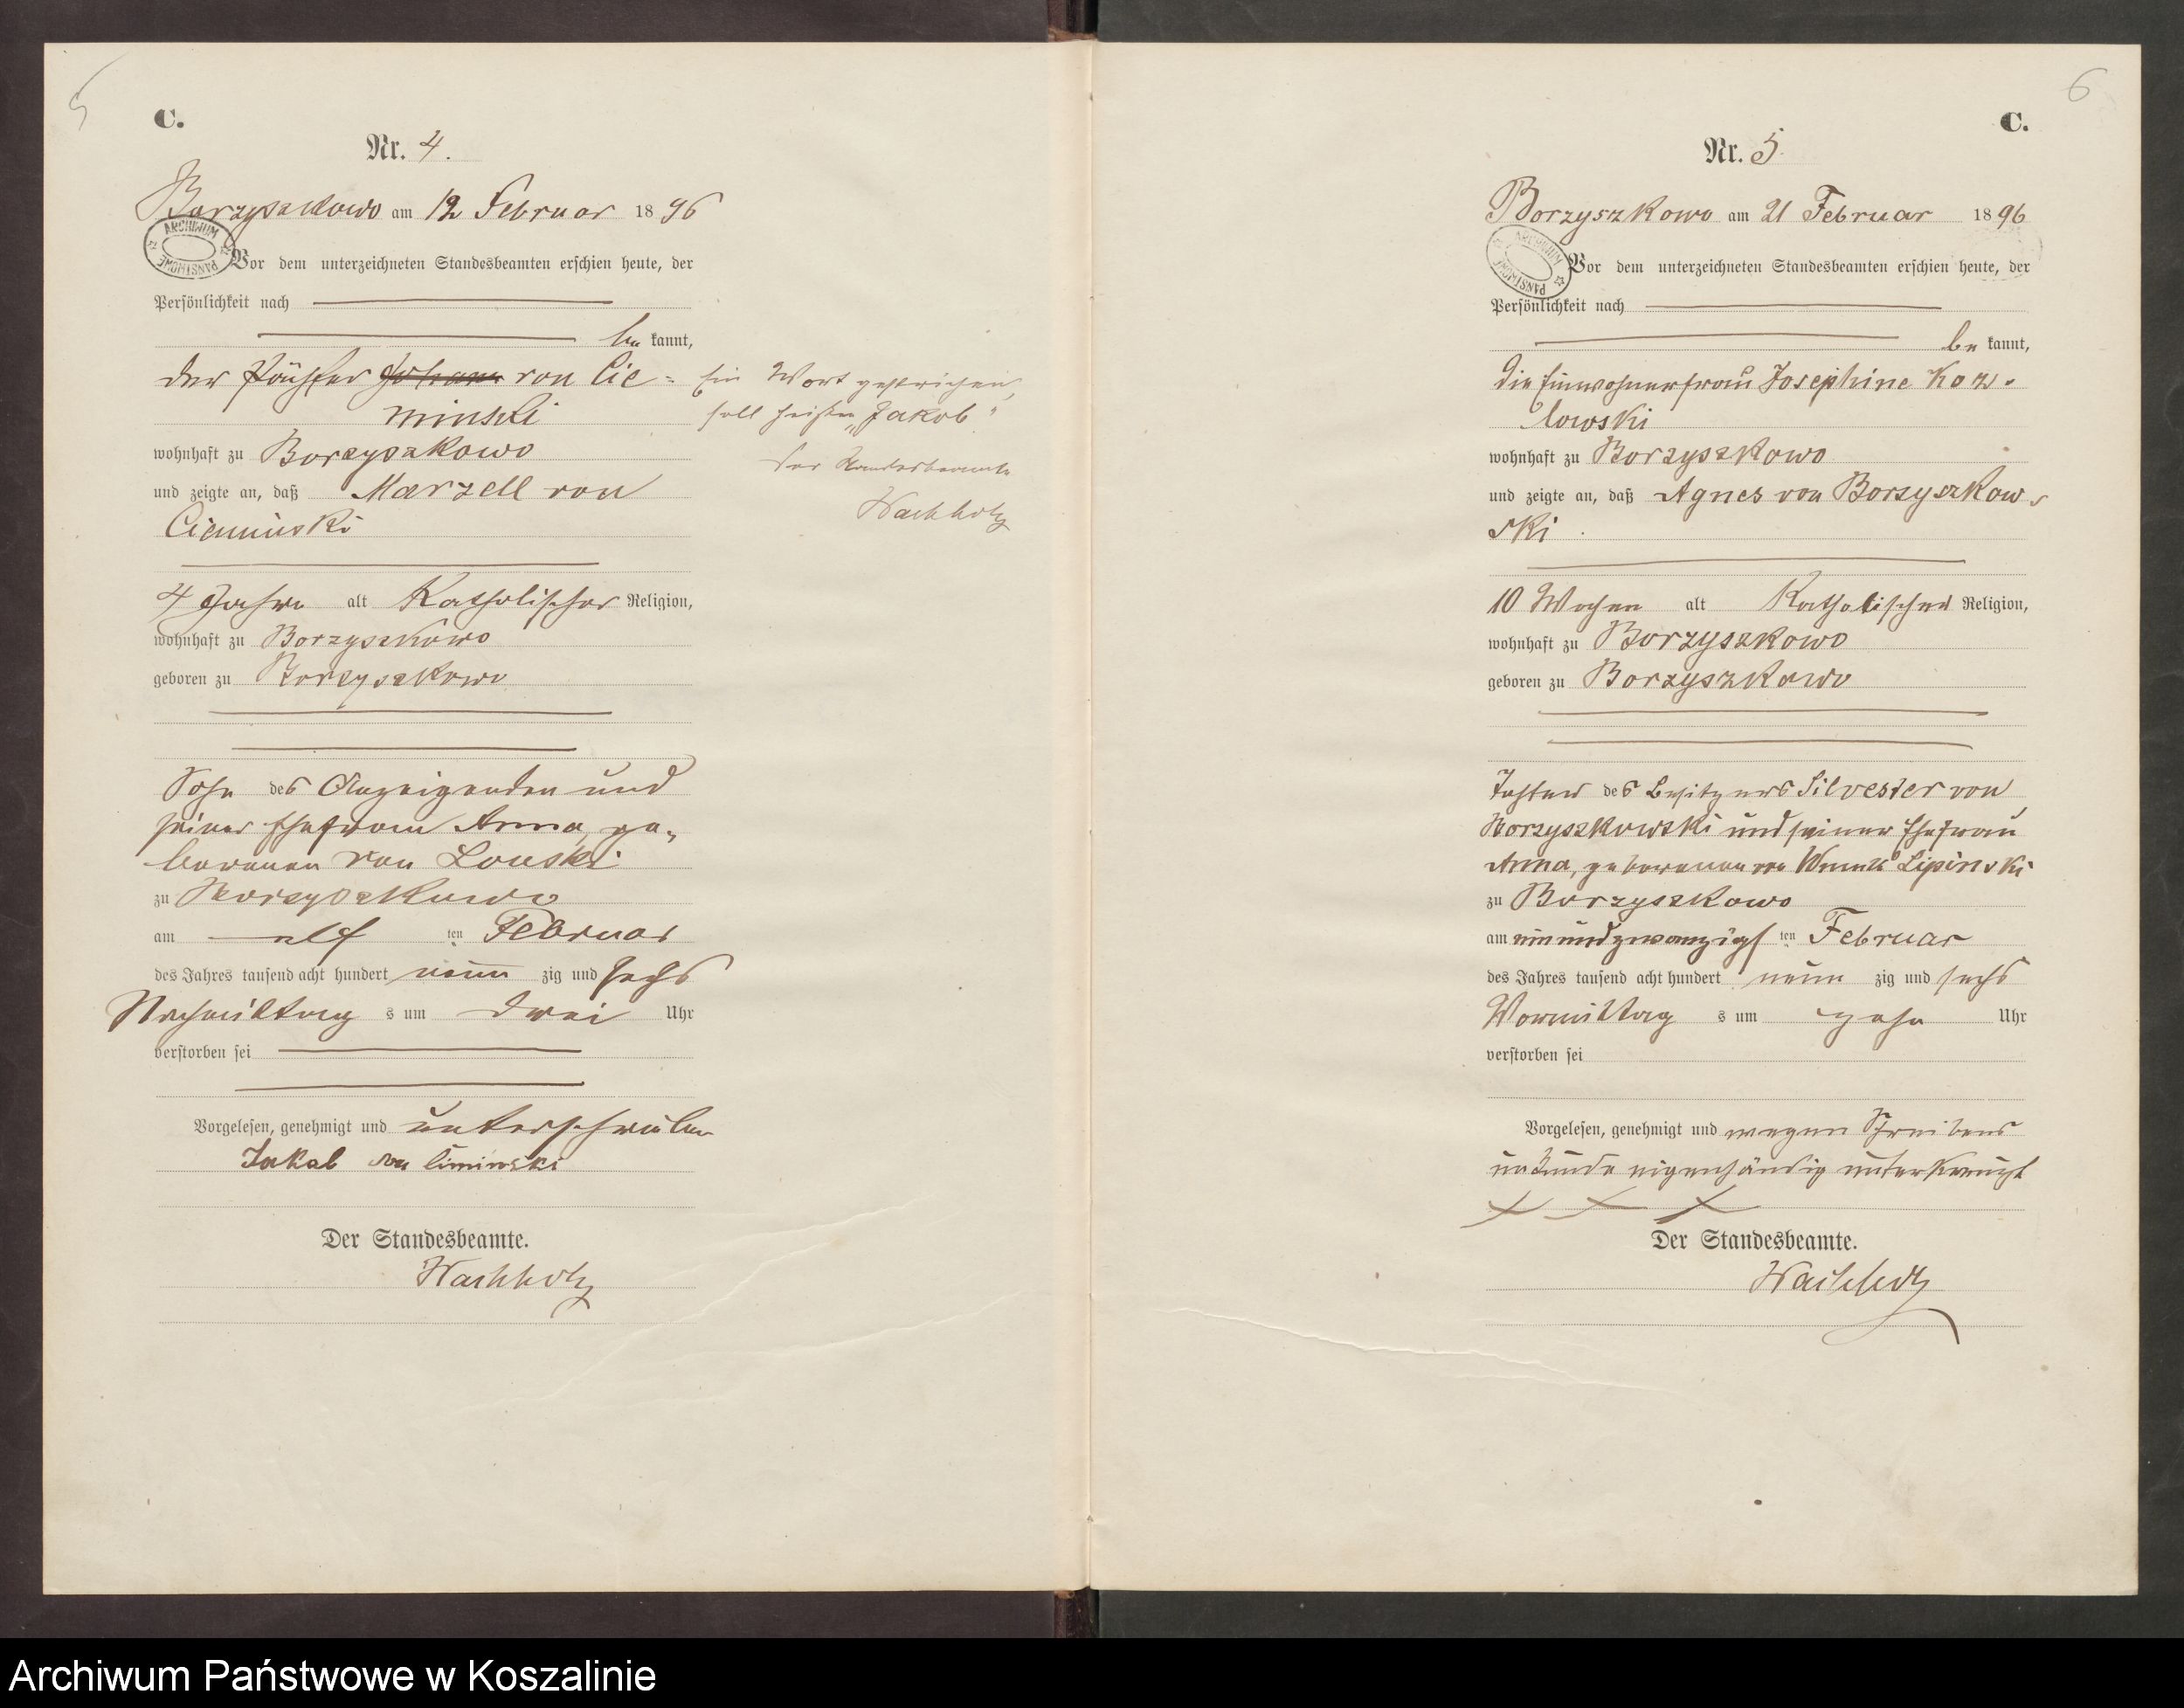 5
C.
Nr. 4.
Borzyszkowo am 12 Februar 1896
ARCHIWUM PAŃSTWOWE
Vor dem unterzeichneten Standesbeamten erschien heute, der
Persönlichkeit nach
be kannt,
der Käthner Johann von Cie=
minski
wohnhaft zu Borzyszkowo
und zeigte an, daß Marzell von
Cieminski
4 Jahre alt Katholischer Religion,
wohnhaft zu Borzyszkowo
geboren zu Borzyszkowo
Sohn des Anzeigenden und
seiner Ehefrau Anna, ge-
borenen von Lonski
zu Borzyszkowo
am elf ten Februar
des Jahres tausend acht hundert neun zig und sechs
Nachmittag s um drei Uhr
verstorben sei
Vorgelesen, genehmigt und unterschrieben
Jakob von Ciminski
Der Standesbeamte.
Wachholz
Ein Wort gestrichen,
soll heißen „Jakob"
Der Standesbeamte
Wachholz
6
C.
Nr. 5.
Borzyszkowo am 21 Februar 1896
ARCHIWUM PAŃSTWOWE
Vor dem unterzeichneten Standesbeamten erschien heute, der
Persönlichkeit nach
be kannt,
die Einwohnerfrau Josephine Koz-
lowski
wohnhaft zu Borzyszkowo
und zeigte an, daß Agnes von Borzyszkow-
ski
10 Wochen alt Katholischer Religion,
wohnhaft zu Borzyszkowo
geboren zu Borzyszkowo
Tochter des Besitzers Silvester von
Borzyszkowski und seiner Ehefrau
Anna, geborenen von Lipinski
zu Borzyszkowo
am einundzwanzigs ten Februar
des Jahres tausend acht hundert neun zig und sechs
Vormittag s um zehn Uhr
verstorben sei
Vorgelesen, genehmigt und wegen Schreibens
unkunde eigenhändig unterkreuzt
X X X
Der Standesbeamte.
Wachholz
Archiwum Państwowe w Koszalinie